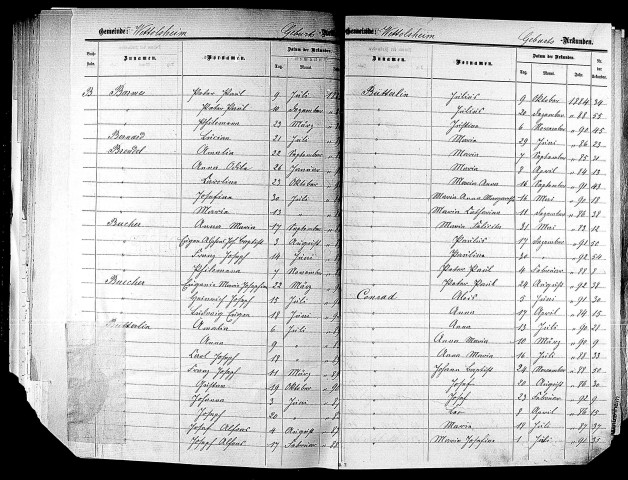 Gemeinde: Wettolsheim Geburts-
Datum der Urkunden.
Zunamen. Vornamen. Tag. Monat.
B Peter Paul 9 Juli
" Peter Paul 10 Dezember
" Philomena 23 März
Bernard Lucian 21 Juli
Brendel Amalia 22 September
" Anna Odila 26 Januar
" Carolina 23 Oktober
" Josefina 30 Juli
" Maria 13 "
Bucher Anna Maria 17 September
" Eugen Alfons Jos. Baptist 3 August
" Franz Josef 14 Juni
" Philomena 7 November
Buecher Eugenie Maria Josefina 22 März
" Heinrich Josef 15 Juli
" Ludwig Eugen 18 Juni
Butterlin Amalia 6 Juli
" Anna 9 "
" Carl Josef 18 "
" Franz Josef 11 März
" Gustav 19 Oktober
" Johanna 3 Juni
" Josef 20 "
" Josef Alfons 4 August
" Josef Alfons 17 Februar
Gemeinde: Wettolsheim Geburts-Urkunden.
Datum der Urkunden.
Zunamen. Vornamen. Tag. Monat. Jahr. Nr. der Urkunden.
Butterlin Julius 9 Oktober 1884 34
" Julius 20 Dezember " 88 55
" Justina 6 November " 90 45
" Maria 29 Juni " 86 23
" Maria 7 September " 85 30
" Maria 8 April " 84 13
" Maria Anna 16 September " 91 43
" Maria Anna Margaretha 16 Mai " 90 18
" Maria Catharina 11 Dezember " 86 38
" Maria 31 Mai " 83 12
" Paulus 17 Dezember " 91 50
" Paulina 30 " " 92 54
" Peter Paul 4 Februar " 88 8
" Peter Paul 24 August " 92 38
Conrad Alois 5 Juni " 91 30
" Anna 17 April " 84 15
" Anna 13 Juli " 90 21
" Anna Maria 10 März " 90 9
" Anna Maria 16 Juli " 88 33
" Johann Baptist 24 November " 88 50
" Josef 20 August " 86 30
" Josef 23 Februar " 92 9
" Leo 8 April " 86 15
" Maria 18 Juli " 87 37
" Maria Josefina 1 Juli " 91 35